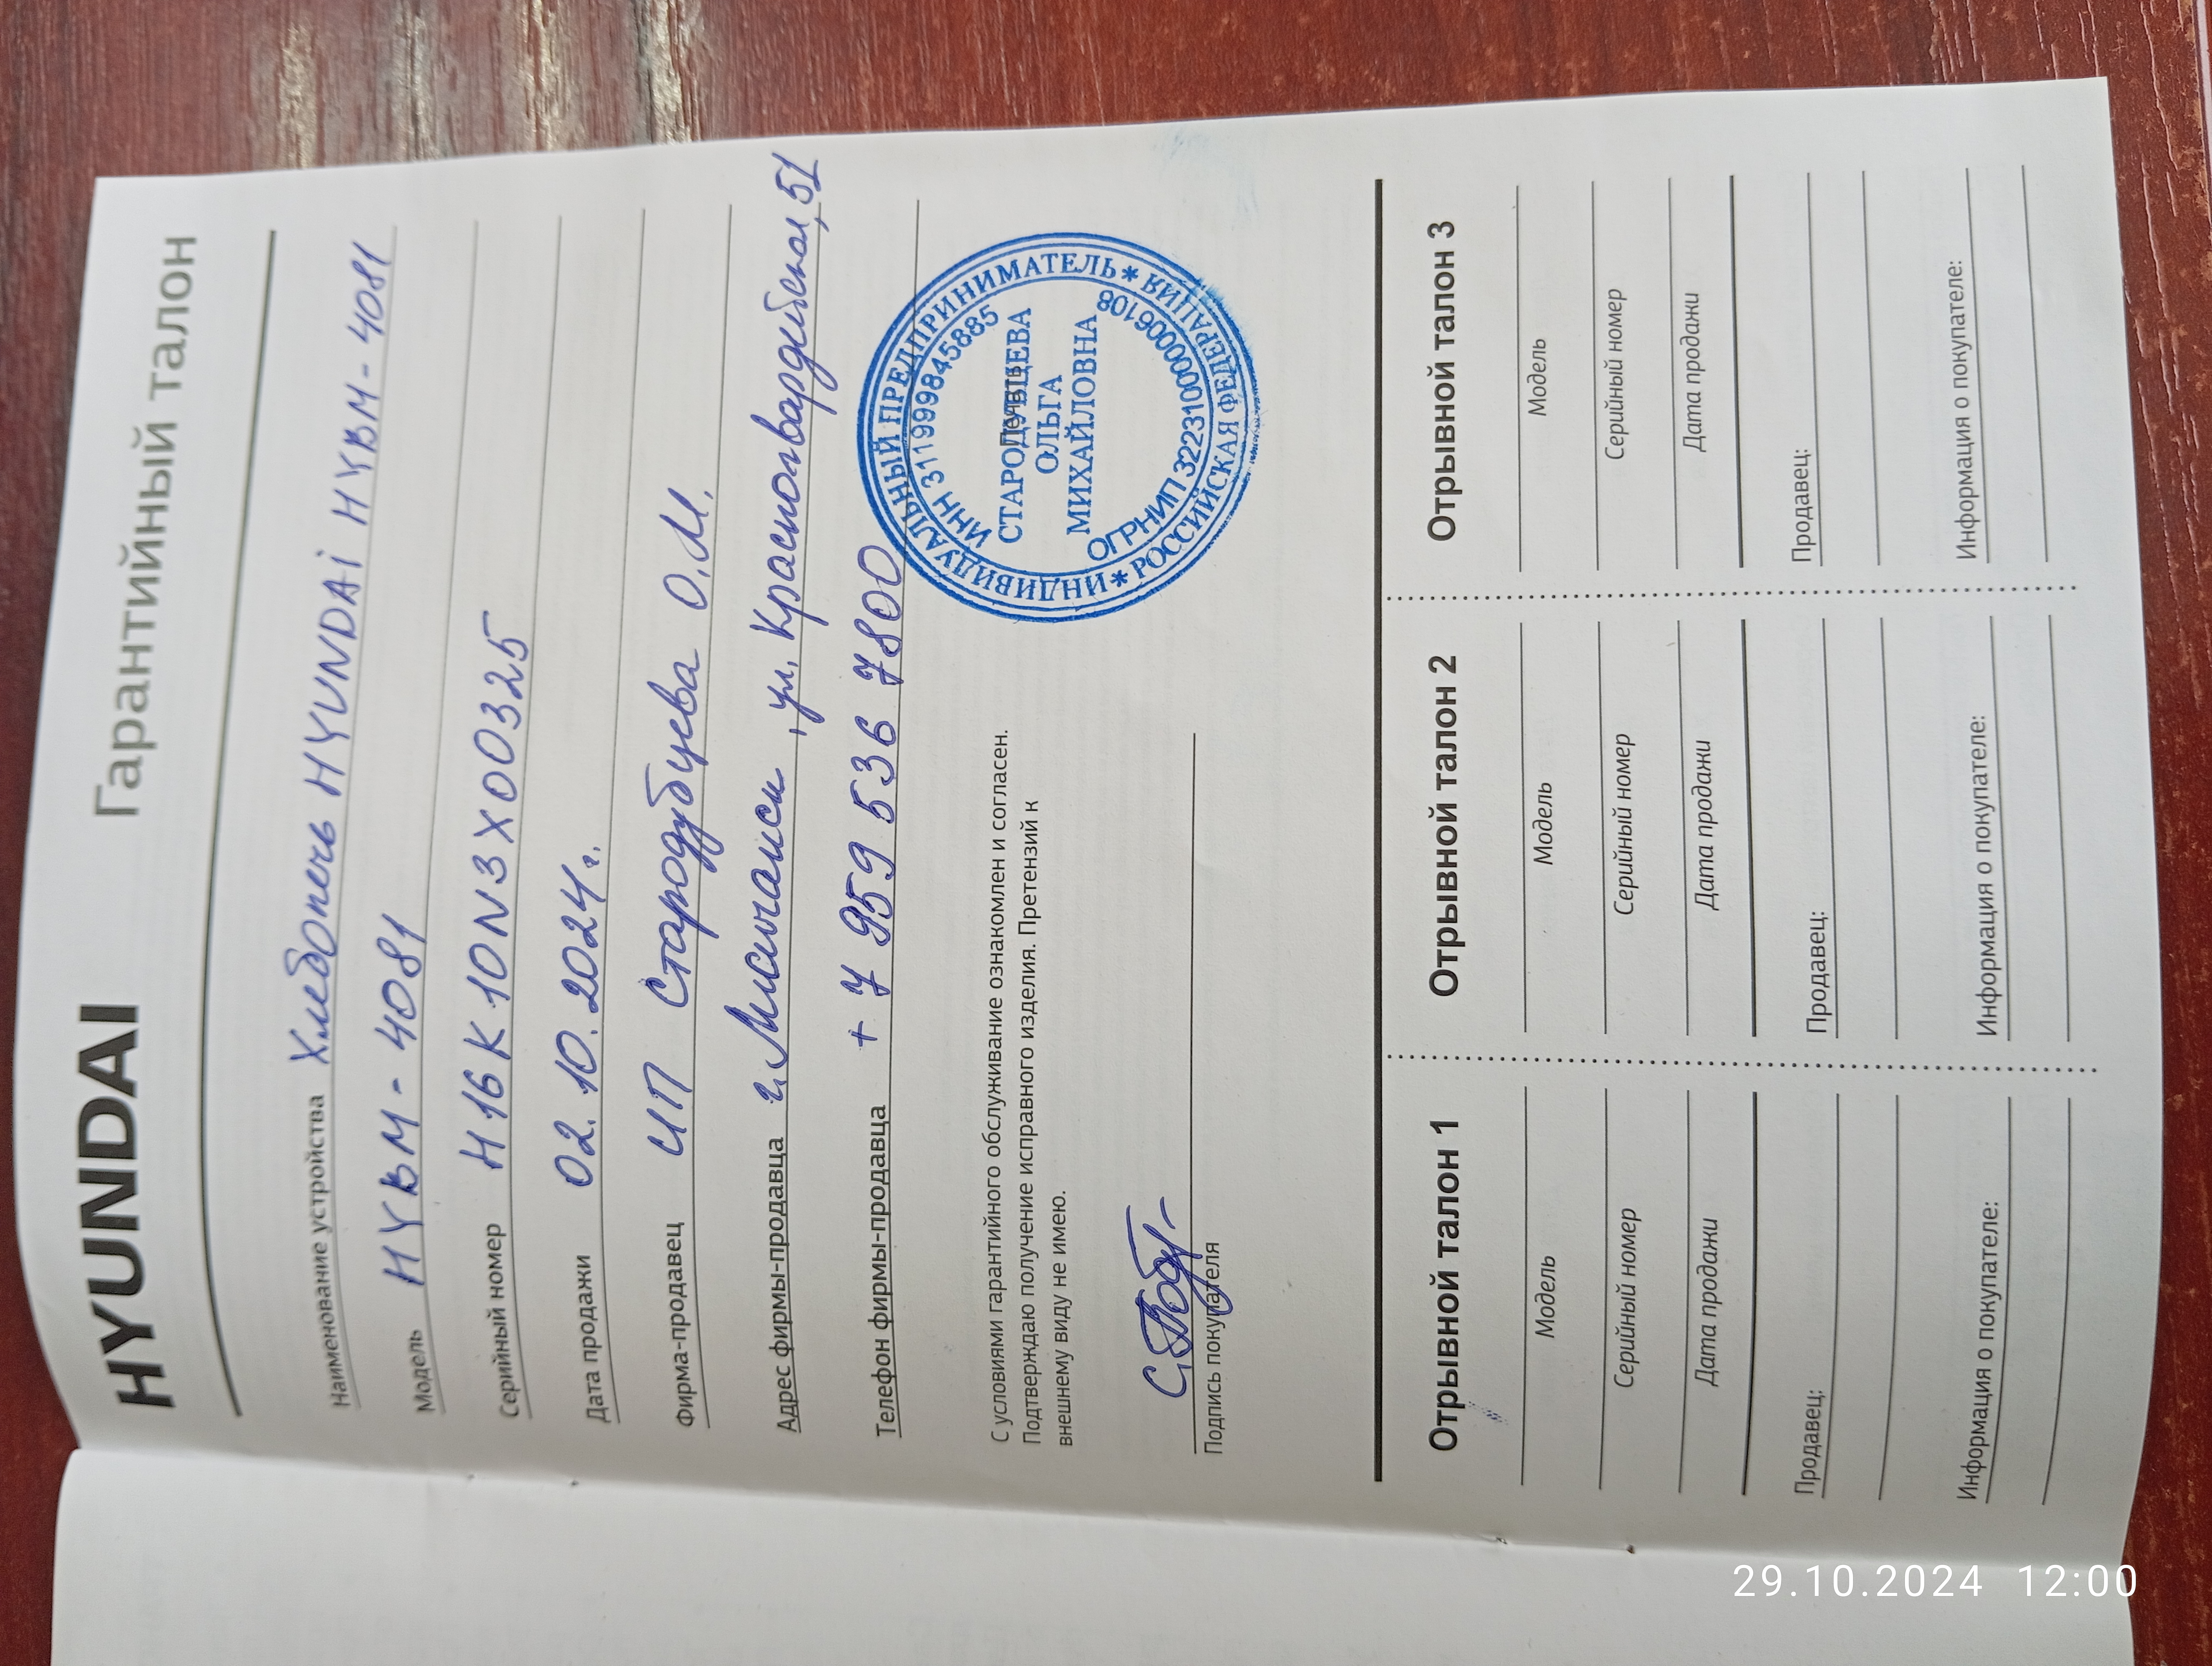 HYUNDAI Гарантийный талон
Наименование устройства Хлебопечь HYUNDAi HYBM-4081
Модель HYBM-4081
Серийный номер H16K10N3X00325
Дата продажи 02.10.2024г.
Фирма-продавец ИП Стародубцева О.М.
Адрес фирмы-продавца г.Лисичанск, ул. Красногвардейская, 51
Телефон фирмы-продавца +7 959 536 7800
ИНДИВИДУАЛЬНЫЙ ПРЕДПРИНИМАТЕЛЬ * РОССИЙСКАЯ ФЕДЕРАЦИЯ *
ИНН 311999845885
СТАРОДУБЦЕВА
ОЛЬГА
МИХАЙЛОВНА
ОГРНИП 322310000006108
С условиями гарантийного обслуживание ознакомлен и согласен.
Подтверждаю получение исправного изделия. Претензий к
внешнему виду не имею.
Подпись покупателя
Отрывной талон 1
Модель
Серийный номер
Дата продажи
Продавец:
Информация о покупателе:
Отрывной талон 2
Модель
Серийный номер
Дата продажи
Продавец:
Информация о покупателе:
Отрывной талон 3
Модель
Серийный номер
Дата продажи
Продавец:
Информация о покупателе:
29.10.2024 12:00